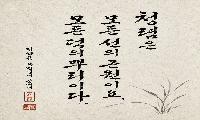 청렴은
모든 선의 근원이요
모든 덕의 뿌리이다